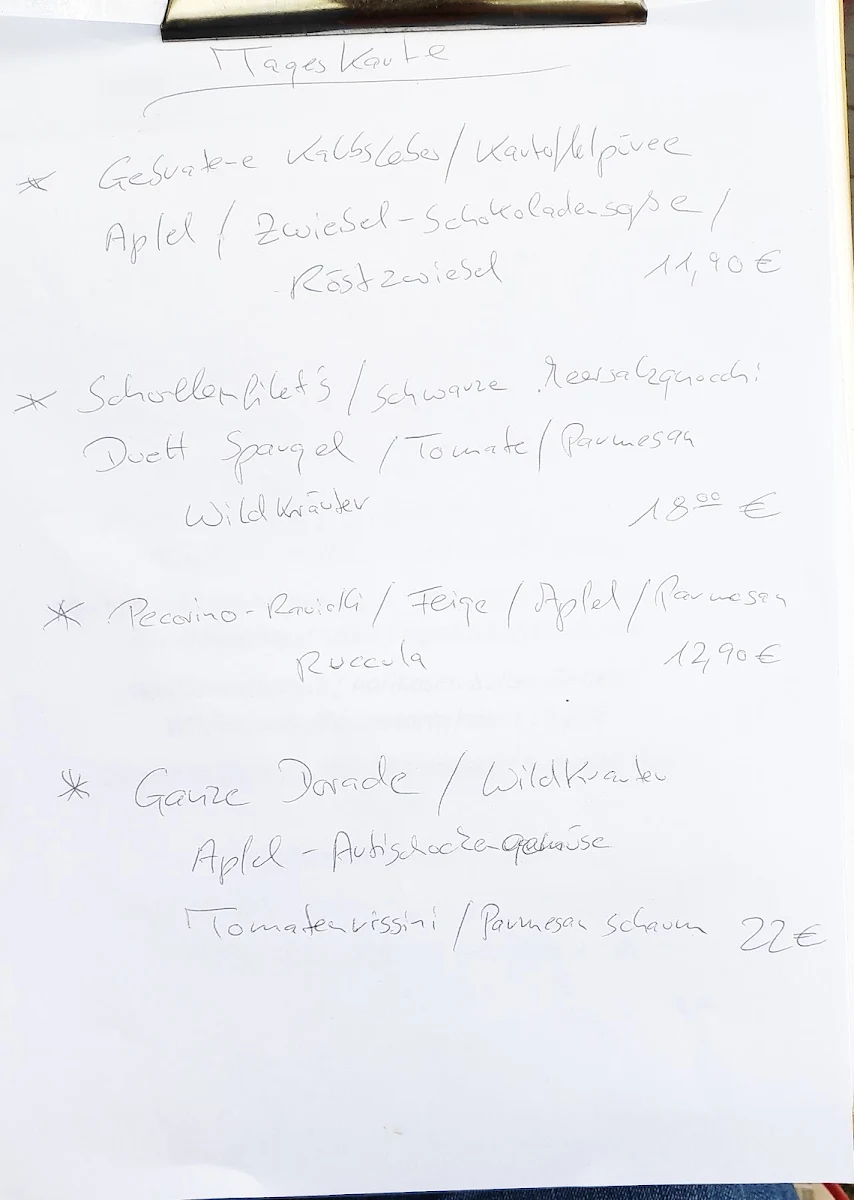 Tageskarte
* Gebratene Kalbsleber / Kartoffelpüree
Apfel / Zwiebel-Schokoladensoße /
Röstzwiebel 11,90 €
* Schollenfilet's / schwarze Meersalzgnocchi
Duett Spargel / Tomate / Parmesan
Wildkräuter 18⁰⁰ €
* Pecorino-Ravioli / Feige / Apfel / Parmesan
Ruccula 12,90 €
* Ganze Dorade / Wildkräuter
Apfel - Artischockengemüse
Tomatenrissini / Parmesan schaum 22 €